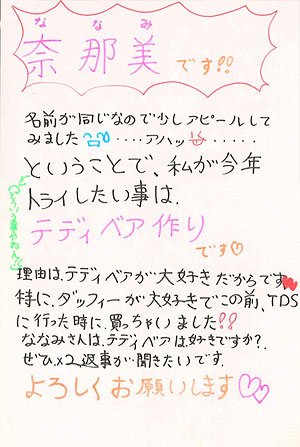 ななみ
奈那美です!!
名前が同じなので少しアピールして
みました ‥‥アハッ ‥‥‥
ということで、私が今年
トライしたい事は、
テディベア作り
です♡
理由は、テディベアが大好きだからです♥
特に、ダッフィーが大好きでこの前、TDS
に行った時に、買っちゃいました!!
ななみさんは、テディベアは、好きですか?
ぜひ×2返事が聞きたいです。
よろしくお願いします♡♡